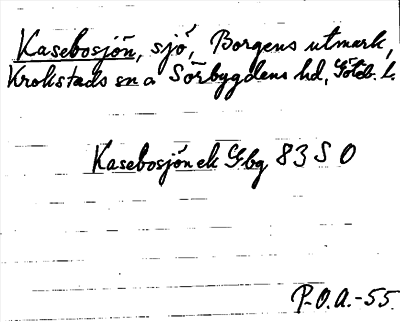 Kasebosjön, sjö, Borgens utmark,
Krokstads sn o Sörbygdens hd, Göteb. l.
Kasebosjön ek Gbg 83 S O
P.O.A.-55.